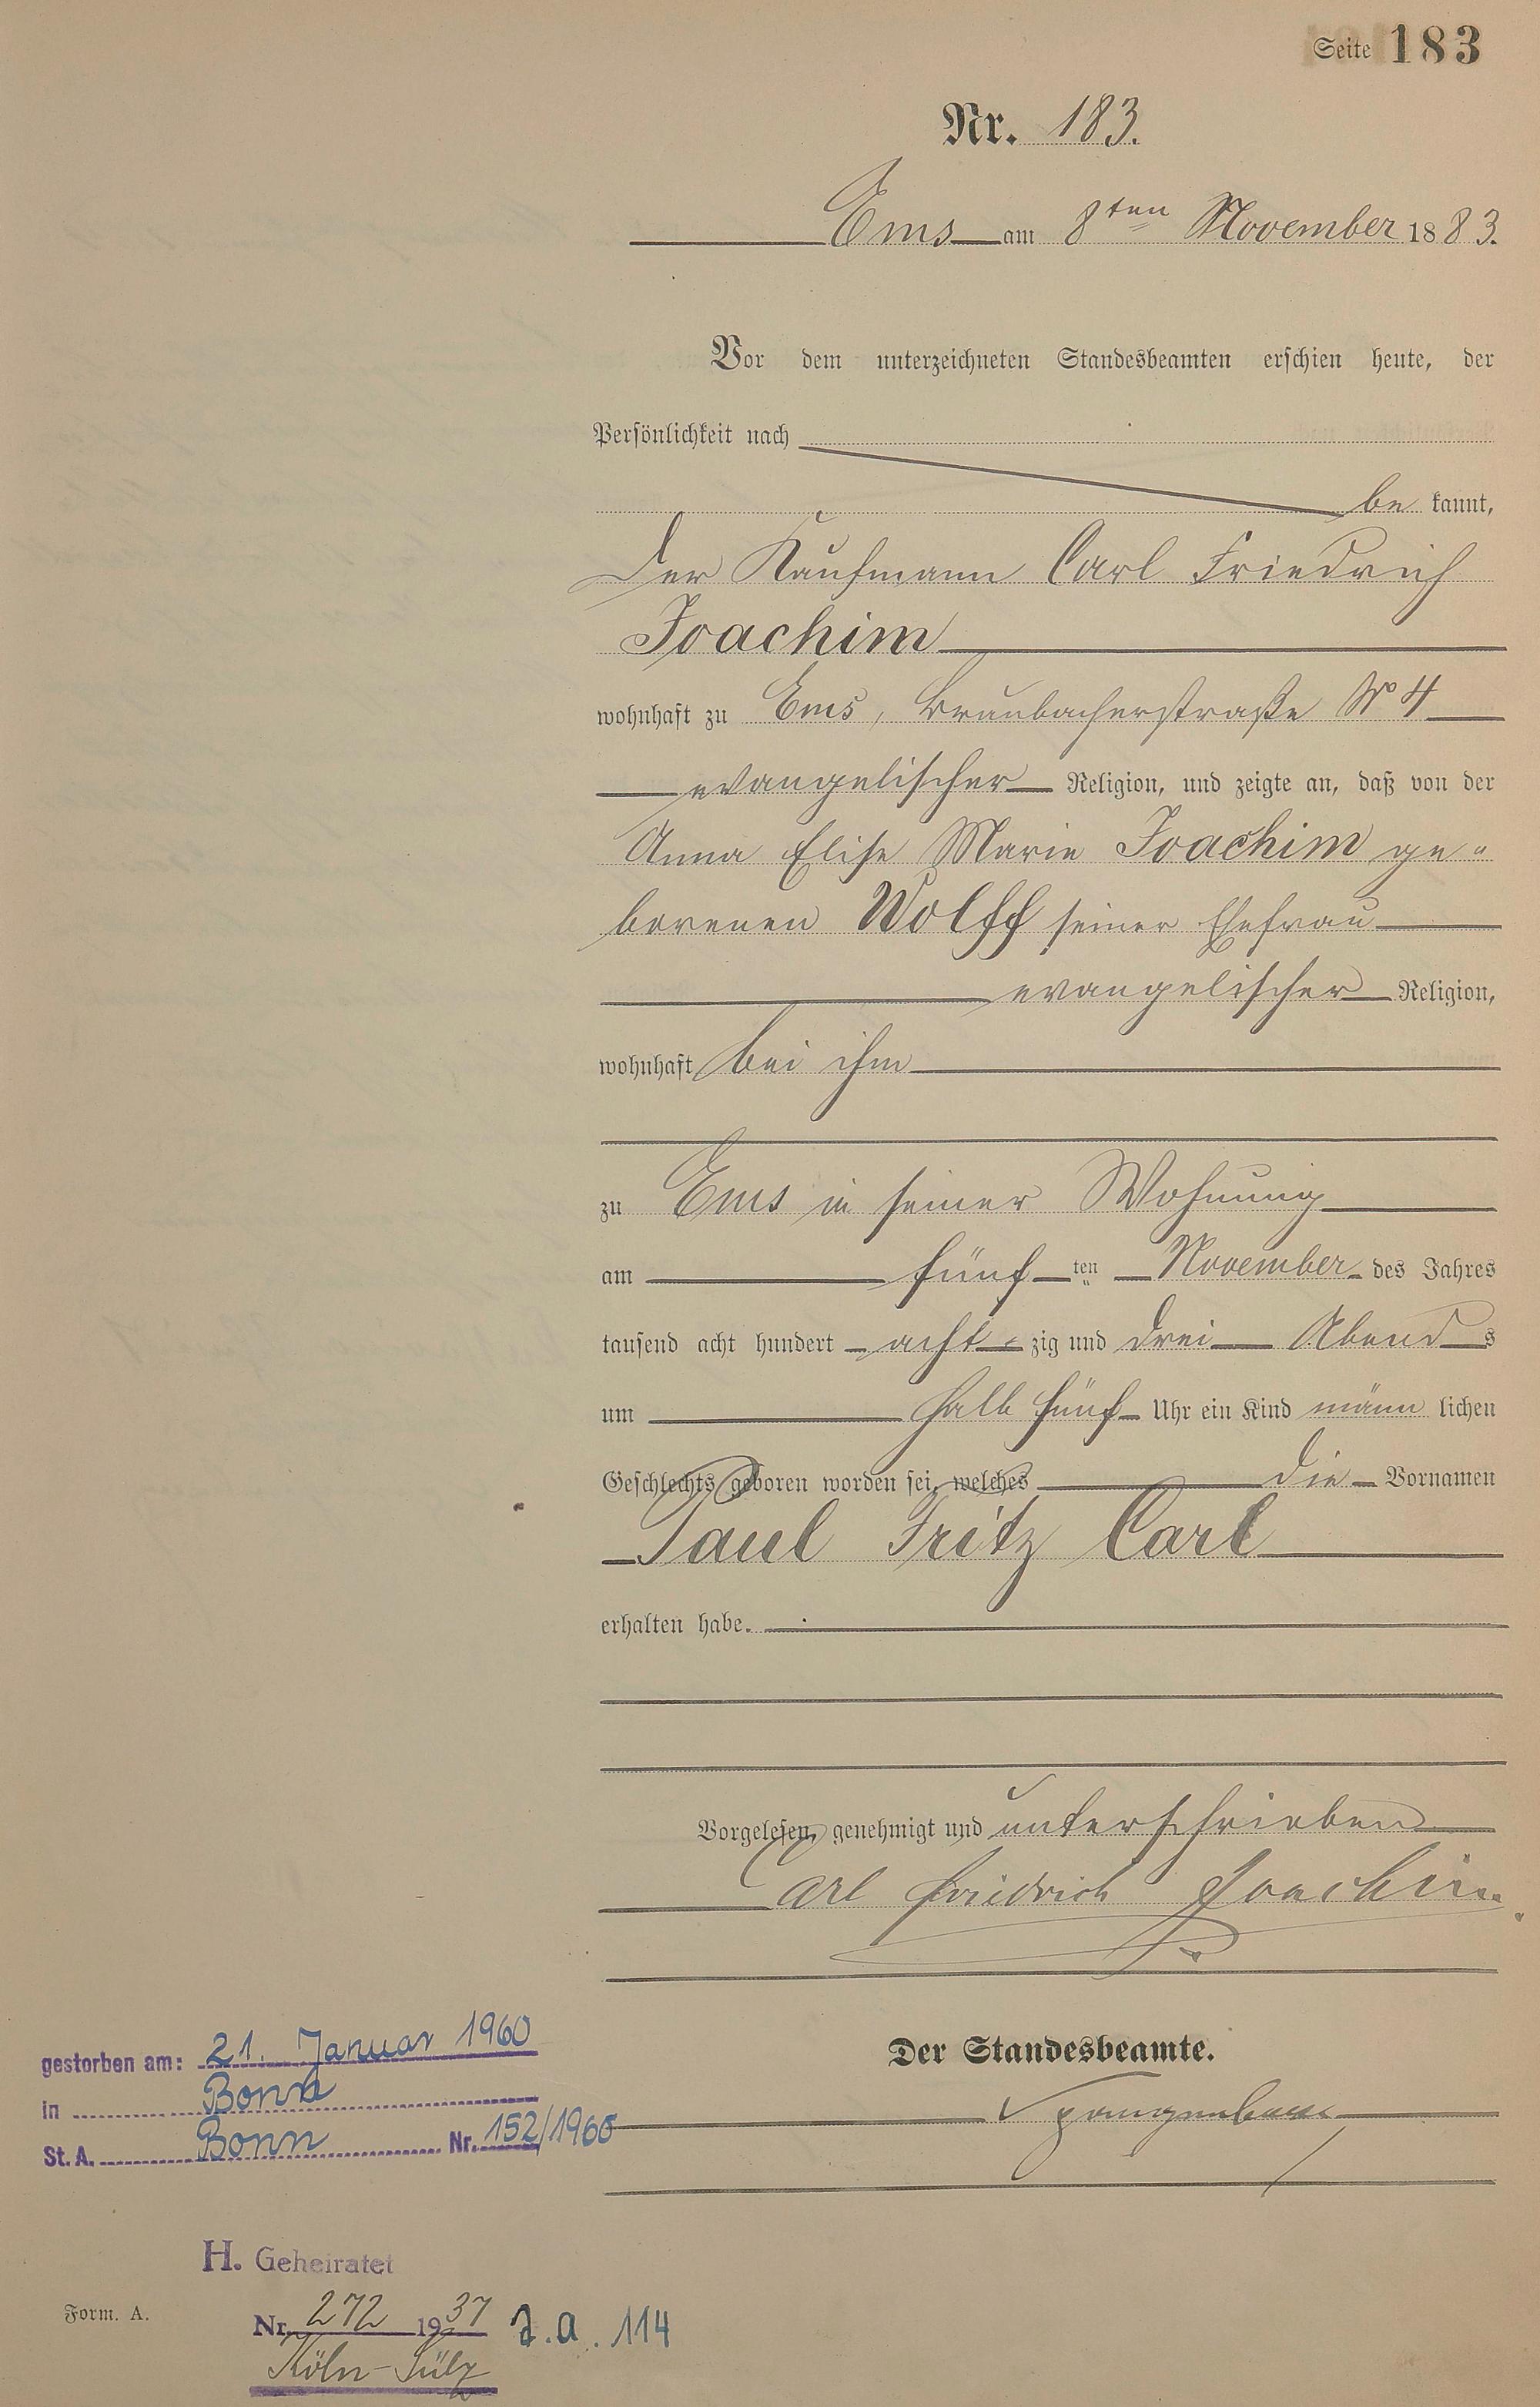 Seite 183
Nr. 183.
Ems am 8ten November 1883.
Vor dem unterzeichneten Standesbeamten erschien heute, der
Persönlichkeit nach
be kannt,
der Kaufmann Carl Friedrich
Joachim
wohnhaft zu Ems, Braubacherstraße No 4
evangelischer Religion, und zeigte an, daß von der
Anna Elise Marie Joachim ge-
borenen Wolff seiner Ehefrau
evangelischer Religion,
wohnhaft bei ihm
zu Ems in seiner Wohnung
am fünf ten November des Jahres
tausend acht hundert acht zig und drei Abend s
um halb fünf Uhr ein Kind männ lichen
Geschlechts geboren worden sei, welches die Vornamen
Paul Fritz Carl
erhalten habe.
Vorgelesen, genehmigt und unterschrieben
Carl Friedrich Joachim
Der Standesbeamte.
gestorben am: 21. Januar 1960
in Bonn
St. A. Bonn Nr. 152/1960
H. Geheiratet
Form. A.
Nr. 272 1937 J.a. 114
Köln-Sülz